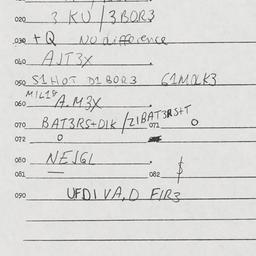 020 3 KU / 3 BOR3
030 + Q No difference
040 AJT3X
050 S1HOT D1BOR3 G1MOLK3
MIL18
060 A.M3X
070 BAT3RS+D1K / Z1BAT3RS+T
071 0
072 0
080 NEJGL
081 — 082 $
090 UFD1 VA,D F1R3